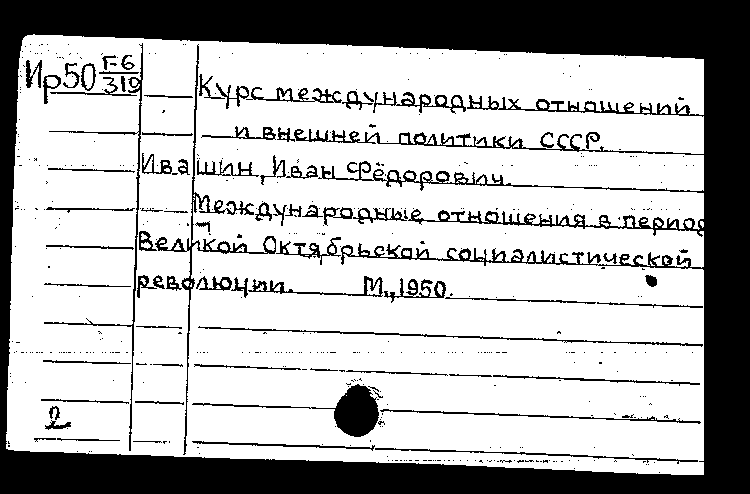 Ир50 Г-6/319
Курс международных отношений
и внешней политики СССР.
Ивашин, Иван Фёдорович.
Международные отношения в период
Великой Октябрьской социалистической
революции. М., 1950.
2